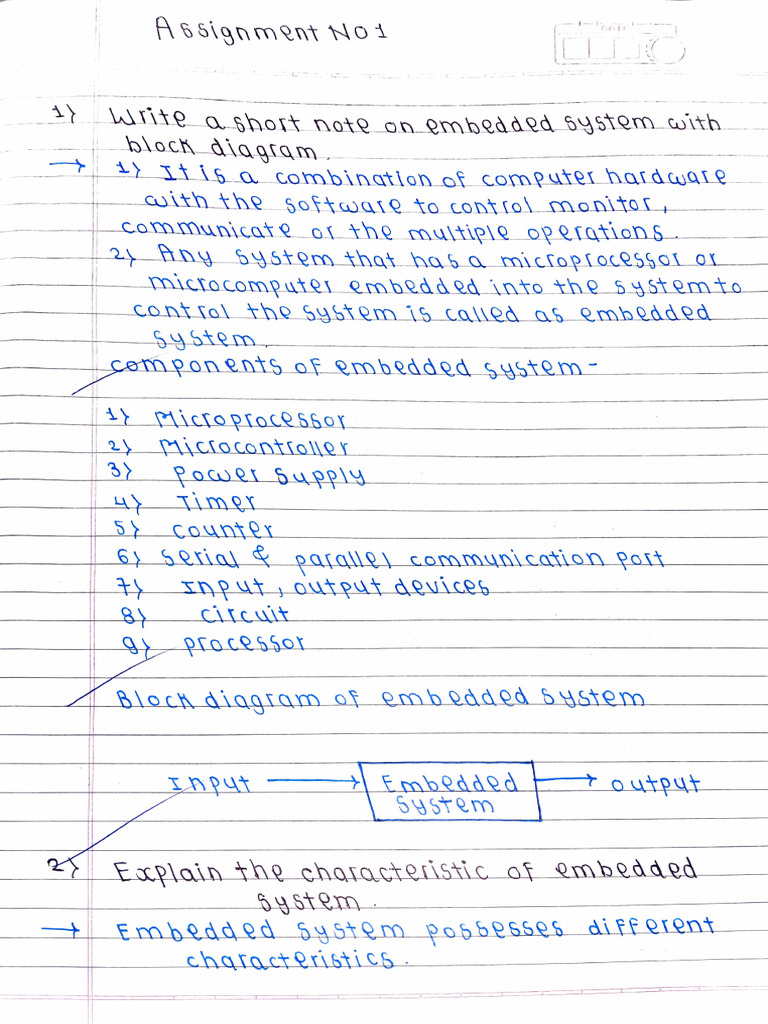 Assignment No 1
1) Write a short note on embedded system with
block diagram.
→ 1) It is a combination of computer hardware
with the software to control monitor,
communicate or the multiple operations.
2) Any system that has a microprocessor or
microcomputer embedded into the system to
control the system is called as embedded
system.
components of embedded system-
1) Microprocessor
2) Microcontroller
3) Power supply
4) Timer
5) counter
6) serial & parallel communication port
7) Input, output devices
8) circuit
9) processor
Block diagram of embedded system
Input → Embedded System → output
2) Explain the characteristic of embedded
system.
→ Embedded system possesses different
characteristics.